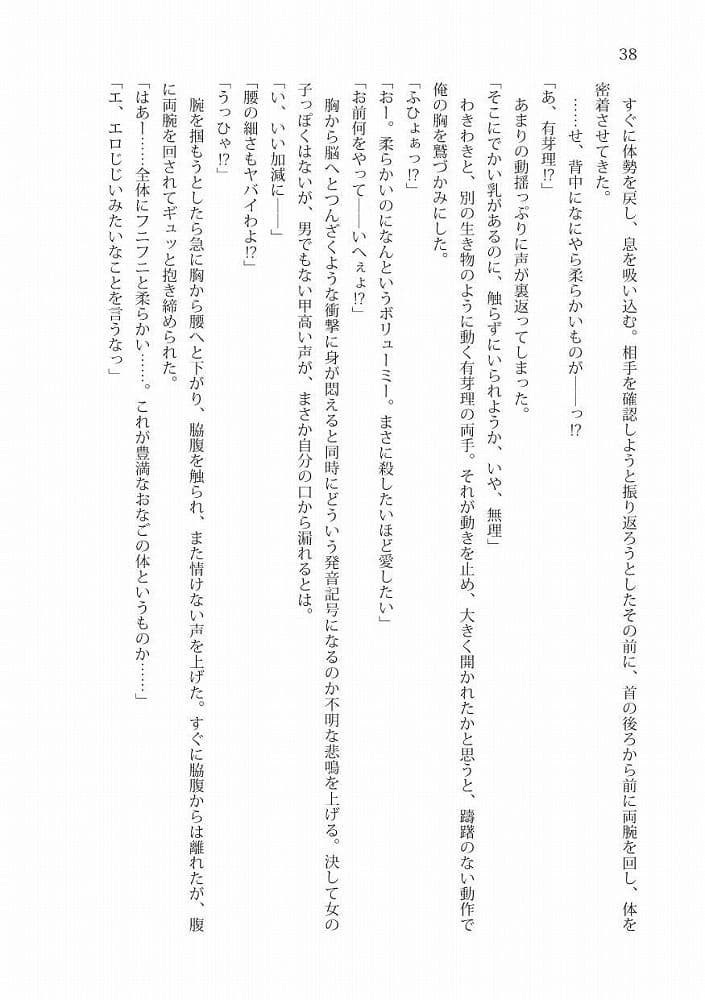 38
　すぐに体勢を戻し、息を吸い込む。相手を確認しようと振り返ろうとしたその前に、首の後ろから前に両腕を回し、体を
密着させてきた。
　……せ、背中になにやら柔らかいものが――っ!?
「あ、有芽理!?
　あまりの動揺っぷりに声が裏返ってしまった。
「そこにでかい乳があるのに、触らずにいられようか、いや、無理」
　わきわきと、別の生き物のように動く有芽理の両手。それが動きを止め、大きく開かれたかと思うと、躊躇のない動作で
俺の胸を鷲づかみにした。
「ふひょぁっ!?
「おー。柔らかいのになんというボリューミー。まさに殺したいほど愛したい」
「お前何をやって――いへぇょ!?
　胸から脳へとつんざくような衝撃に身が悶えると同時にどういう発音記号になるのか不明な悲鳴を上げる。決して女の
子っぽくはないが、男でもない甲高い声が、まさか自分の口から漏れるとは。
「い、いい加減に――」
「腰の細さもヤバイわよ!?
「うっひゃ!?
　腕を掴もうとしたら急に胸から腰へと下がり、脇腹を触られ、また情けない声を上げた。すぐに脇腹からは離れたが、腹
に両腕を回されてギュッと抱き締められた。
「はあー……全体にフニフニと柔らかい……。これが豊満なおなごの体というものか……」
「エ、エロじじいみたいなことを言うなっ」